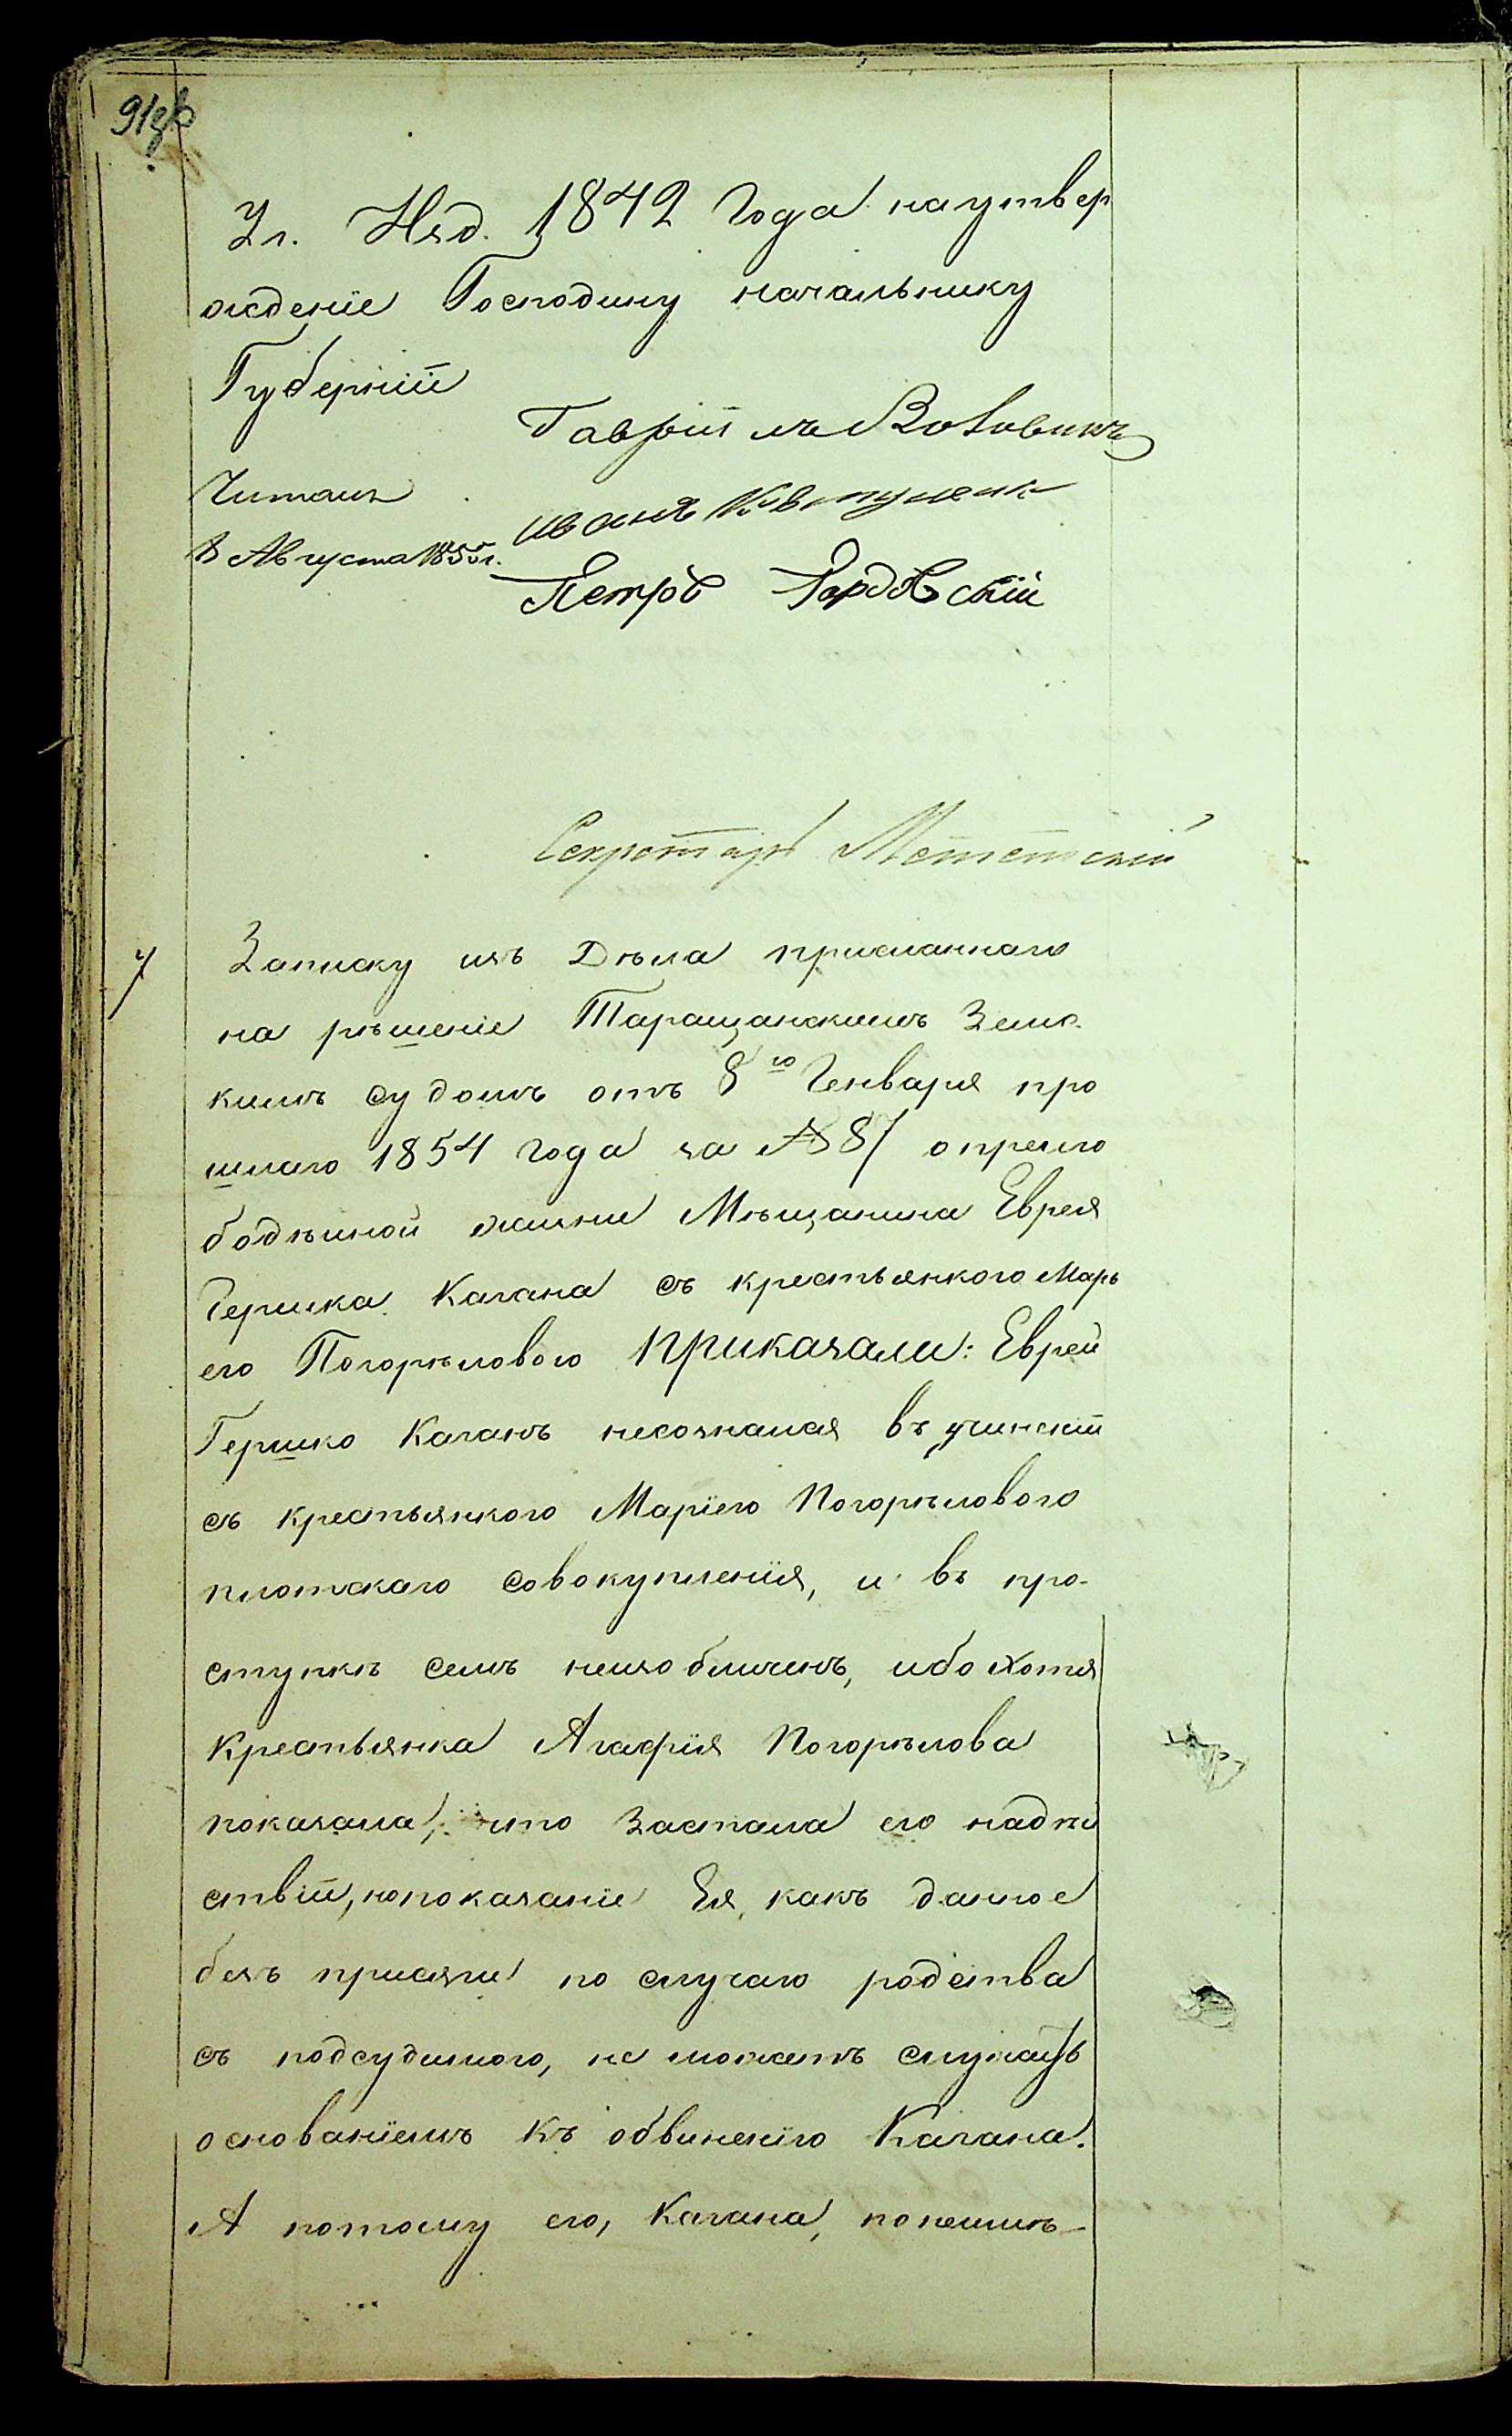 Уг. Изд. 1842 года на утвер
жденіе Господину начальнику
Губерніи
Гавріилъ
Читалъ
Августа 1855 г.
Иванъ
Петръ
Секретарь
7
Записку изъ Дѣла присланнаго
на рѣшеніе Таращанскимъ Земс
кимъ судомъ отъ 8го Генваря про
шлаго 1854 года за № 87 о прелю
бодѣйной жизни Мѣщанина Еврея
Гершка Кагана съ крестьянкою Марь
ею Погорѣловою Приказали: Еврей
Гершко Каганъ несознался въ учиненіи
съ крестьянкою Маріею Погорѣловою
плотскаго совокупленія, и въ про-
ступкѣ семъ неизобличенъ, ибо хотя
Крестьянка Агафія Погорѣлова
показала, что Застала его надѣй
ствіи, но показаніе Ея, какъ данное
безъ присяги по случаю родства
съ подсудимою, не можетъ служить
основаніемъ къ обвиненію Кагана.
А потому его, Кагана, по неимѣ-